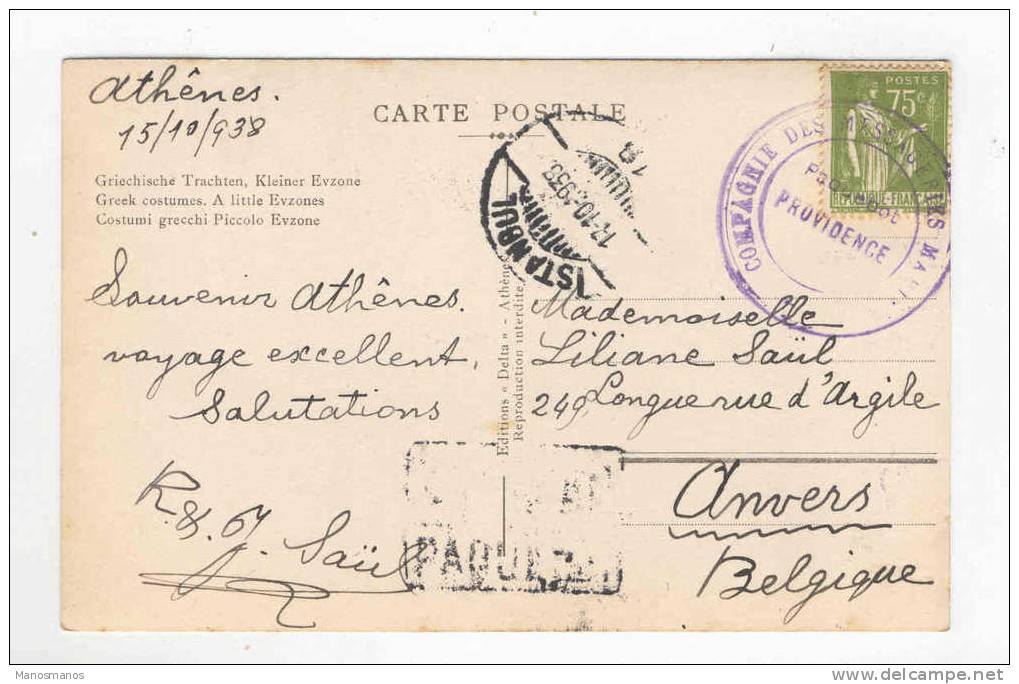 Athênes.
15/10/938
CARTE POSTALE
POSTES
75c
REPUBLIQUE-FRANCAISE
COMPAGNIE DES MESSAGERIES
Paquebot
PROVIDENCE
ISTANBUL
17-10-1938
18
Griechische Trachten, Kleiner Evzone
Greek costumes. A little Evzones
Costumi grecchi Piccolo Evzone
Souvenir Athênes.
voyage excellent.
Salutations
R. & J. Saül
Editions « Delta » - Athènes
Reproduction interdite
Mademoiselle
Liliane Saül
249 Longue rue d'Argile
Anvers
Belgique
PAQUEBOT
Manosmanos
delcampe.net